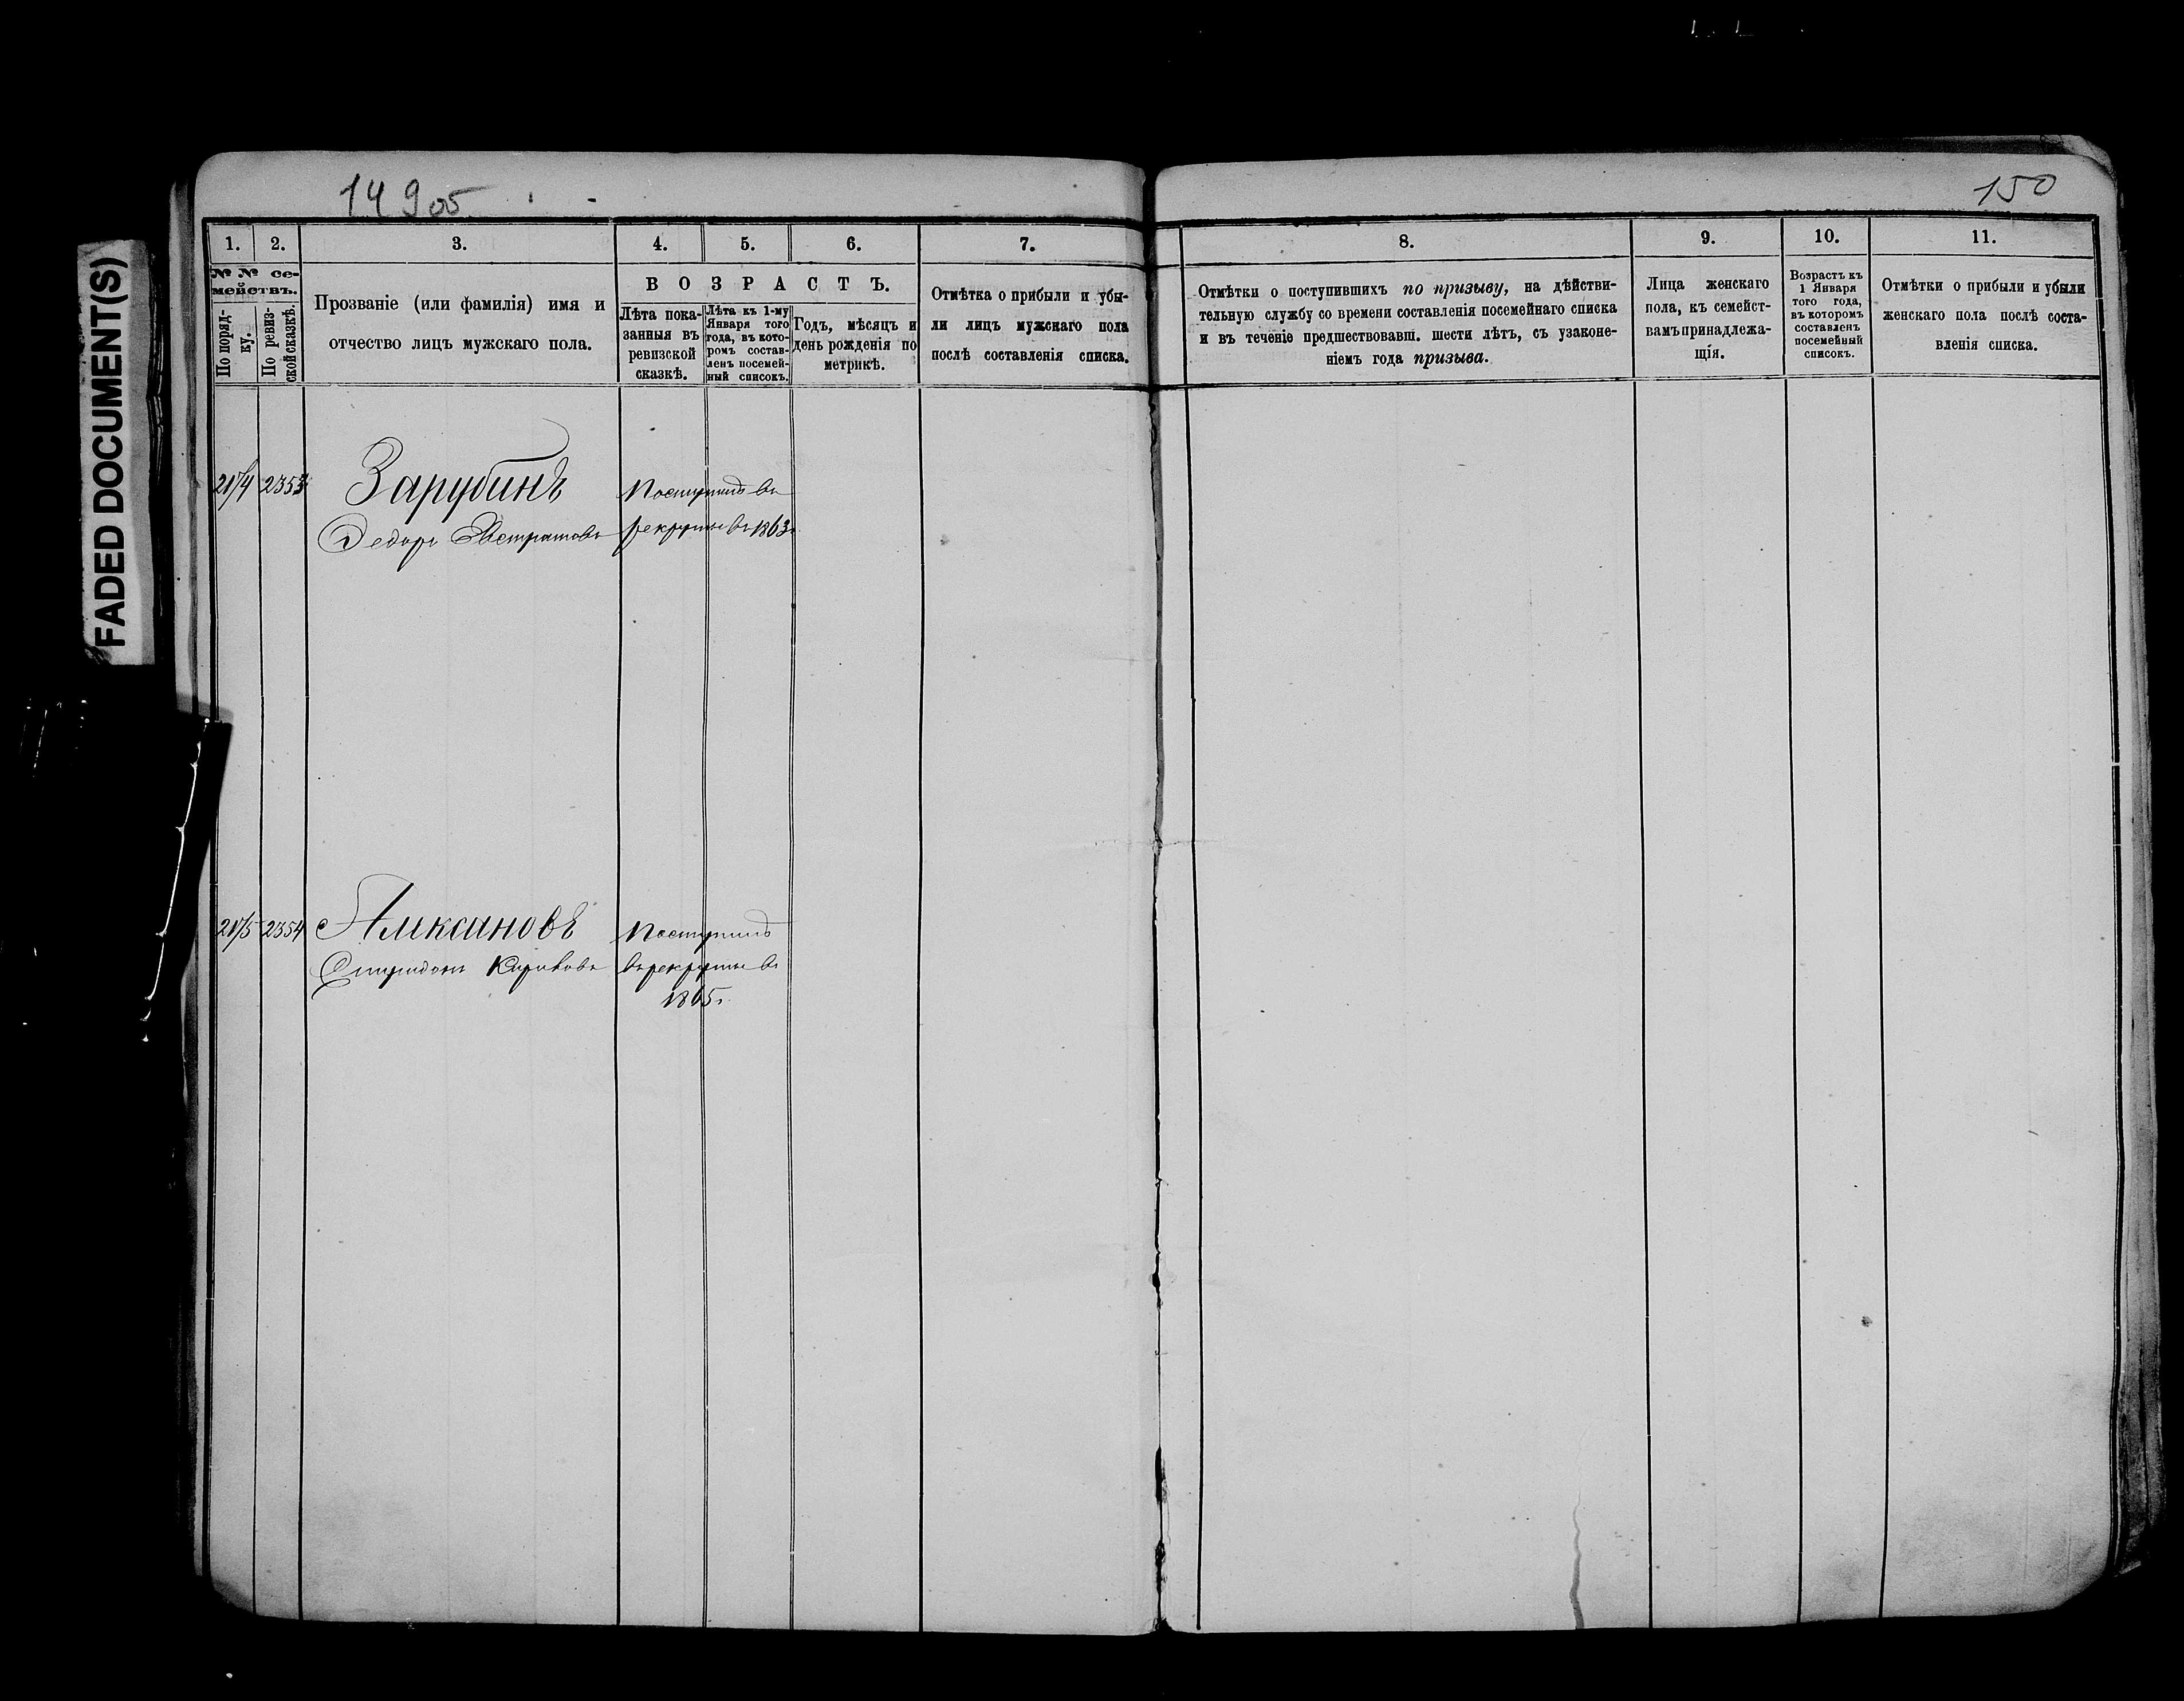 149об
150
FADED DOCUMENT(S)
1. 2. 3. 4. 5. 6. 7. 8. 9. 10. 11.
№ № се-
мействъ.
По поряд-
ку.
По ревиз-
ской сказкѣ.
Прозваніе (или фамилія) имя и
отчество лицъ мужскаго пола.
ВОЗРАСТЪ.
Лѣта пока-
занныя въ
ревизской
сказкѣ.
Лѣта къ 1-му
Января того
года, въ кото-
ромъ состав-
ленъ посемей-
ный списокъ.
Годъ, мѣсяцъ и
день рожденія по
метрикѣ.
Отмѣтка о прибыли и убы-
ли лицъ мужскаго пола
послѣ составленія списка.
Отмѣтки о поступившихъ по призыву, на дѣйстви-
тельную службу со времени составленія посемейнаго списка
и въ теченіе предшествовавш. шести лѣтъ, съ узаконе-
ніемъ года призыва.
Лица женскаго
пола, къ семейст-
вамъ принадлежа-
щія.
Возрастъ къ
1 Января
того года,
въ которомъ
составленъ
посемейный
списокъ.
Отмѣтки о прибыли и убыли
женскаго пола послѣ соста-
вленія списка.
2174 2353 Зарубинъ Поступилъ въ
Федоръ Евстратовъ рекруты въ 1863г
2175 2354 Поступилъ
Спиридонъ въ рекруты въ
1865г.